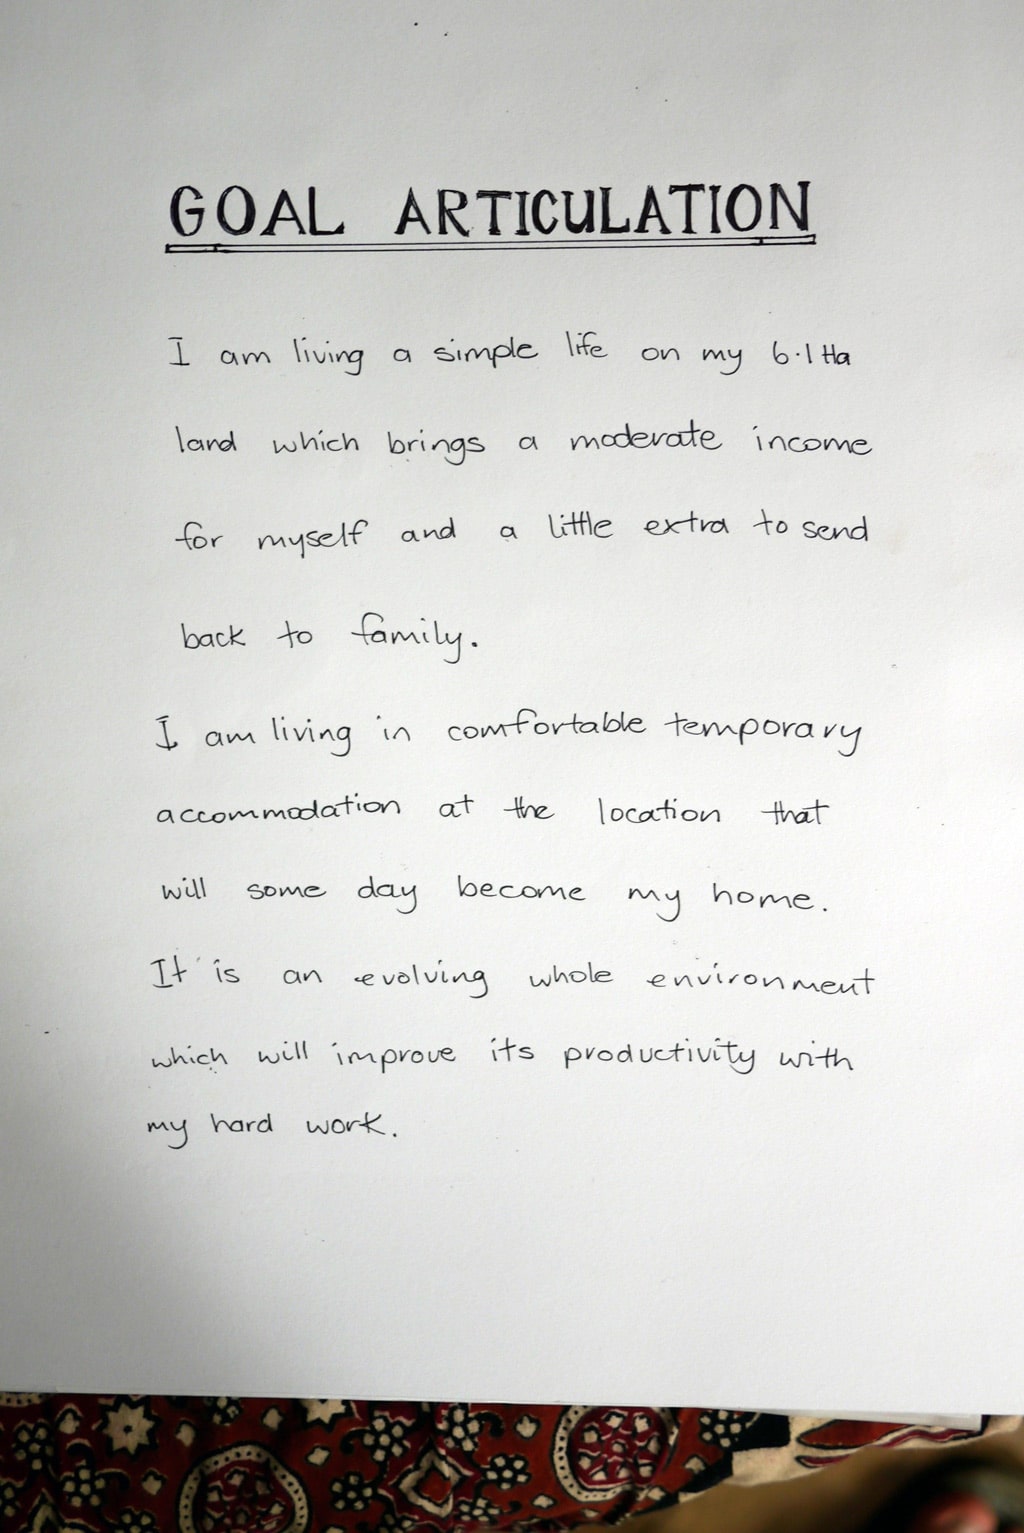 GOAL ARTICULATION
I am living a simple life on my 6.1 Ha
land which brings a moderate income
for myself and a little extra to send
back to family.
I am living in comfortable temporary
accommodation at the location that
will some day become my home.
It is an evolving whole environment
which will improve its productivity with
my hard work.